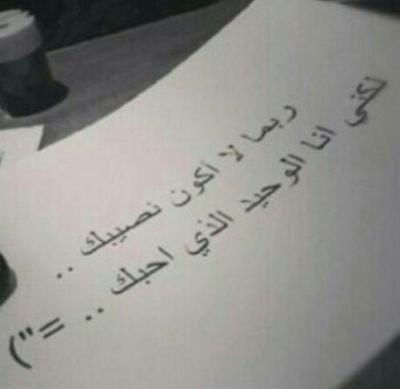 ربما لا أكون نصيبك ..
لكني انا الوحيد الذي احبك .. =")